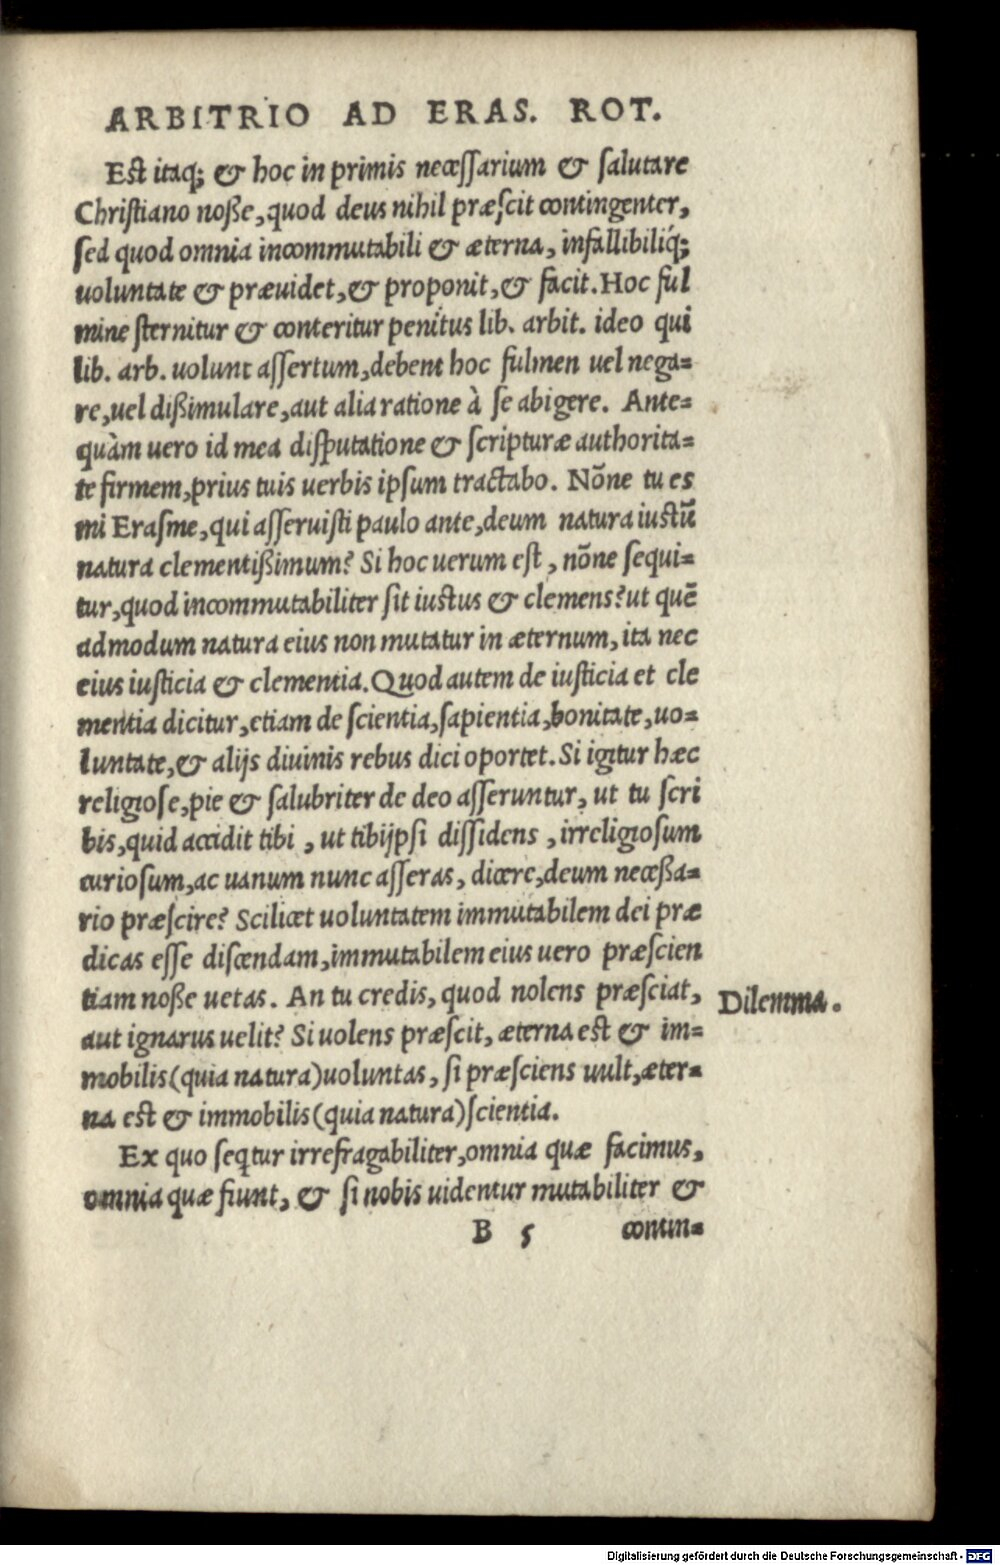 ARBITRIO AD ERAS. ROT.
Est itaq; & hoc in primis necessarium & salutare
Christiano noße, quod deus nihil præscit contingenter,
sed quod omnia incommutabili & æterna, infallibiliq́;
uoluntate & præuidet, & proponit, & facit. Hoc ful
mine sternitur & conteritur penitus lib. arbit. ideo qui
lib. arb. uolunt assertum, debent hoc fulmen uel nega=
re, uel dißimulare, aut alia ratione à se abigere. Ante=
quàm uero id mea disputatione & scripturæ authorita=
te firmem, prius tuis uerbis ipsum tractabo. Nõne tu es
mi Erasme, qui asseruisti paulo ante, deum natura iustũ
natura clementißimum? Si hoc uerum est, nõne sequi=
tur, quod incommutabiliter sit iustus & clemens? ut quẽ
admodum natura eius non mutatur in æternum, ita nec
eius iusticia & clementia. Quod autem de iusticia et cle
mentia dicitur, etiam de scientia, sapientia, bonitate, uo=
luntate, & alijs diuinis rebus dici oportet. Si igitur hæc
religiose, pie & salubriter de deo asseruntur, ut tu scri
bis, quid accidit tibi, ut tibijpsi dissidens, irreligiosum
curiosum, ac uanum nunc asseras, dicere, deum neceßa=
rio præscire? Scilicet uoluntatem immutabilem dei præ
dicas esse discendam, immutabilem eius uero præscien
tiam noße uetas. An tu credis, quod nolens præsciat,
Dilemma.
aut ignarus uelit? Si uolens præscit, æterna est & im=
mobilis (quia natura) uoluntas, si præsciens uult, æter=
na est & immobilis (quia natura) scientia.
Ex quo seqtur irrefragabiliter, omnia quæ facimus,
omnia quæ fiunt, & si nobis uidentur mutabiliter &
B 5 contin=
Digitalisierung gefördert durch die Deutsche Forschungsgemeinschaft - DFG